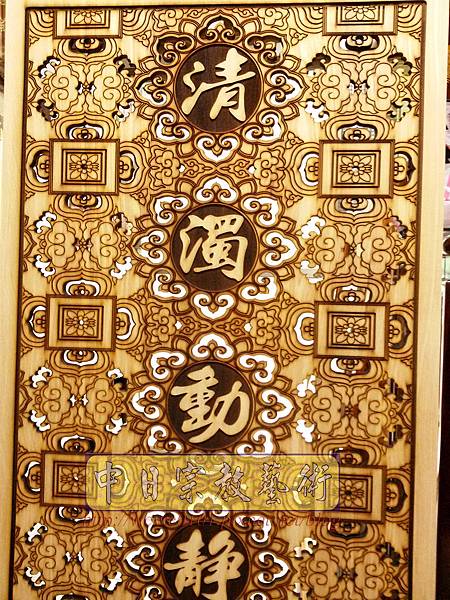 清
濁
動
中日宗教藝術
靜